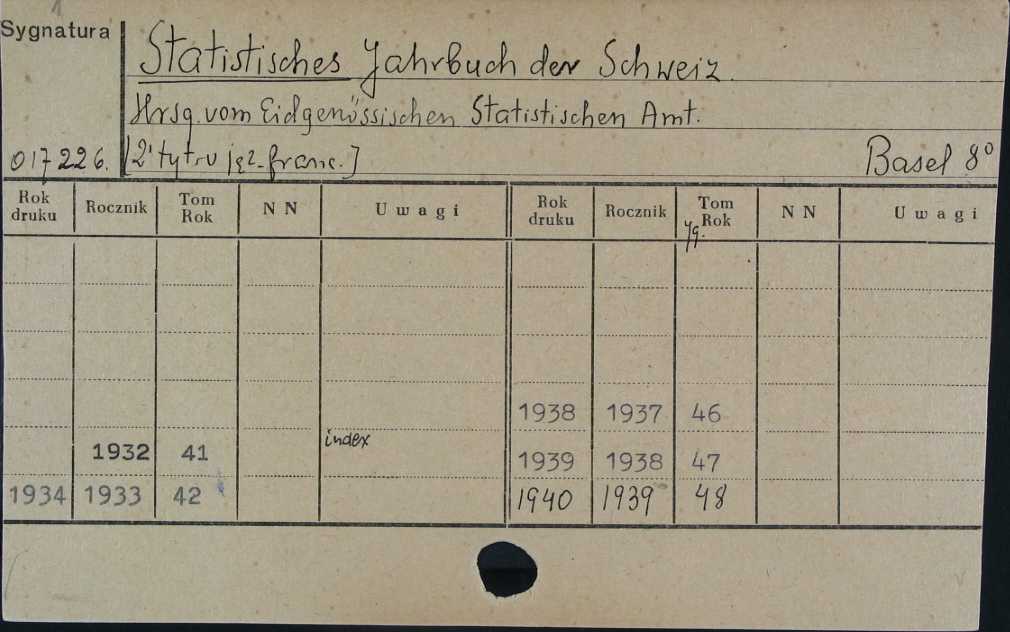 1
Sygnatura
Statistisches Jahrbuch der Schweiz.
Hrsg. vom Eidgenössischen Statistischen Amt.
017226. [2' tyt. w jęz. franc.] Basel 8°
Rok druku Rocznik Tom Rok N N Uwagi Rok druku Rocznik Tom Rok N N Uwagi
Jg.
1938 1937 46
1932 41 index 1939 1938 47
1934 1933 42 1940 1939 48